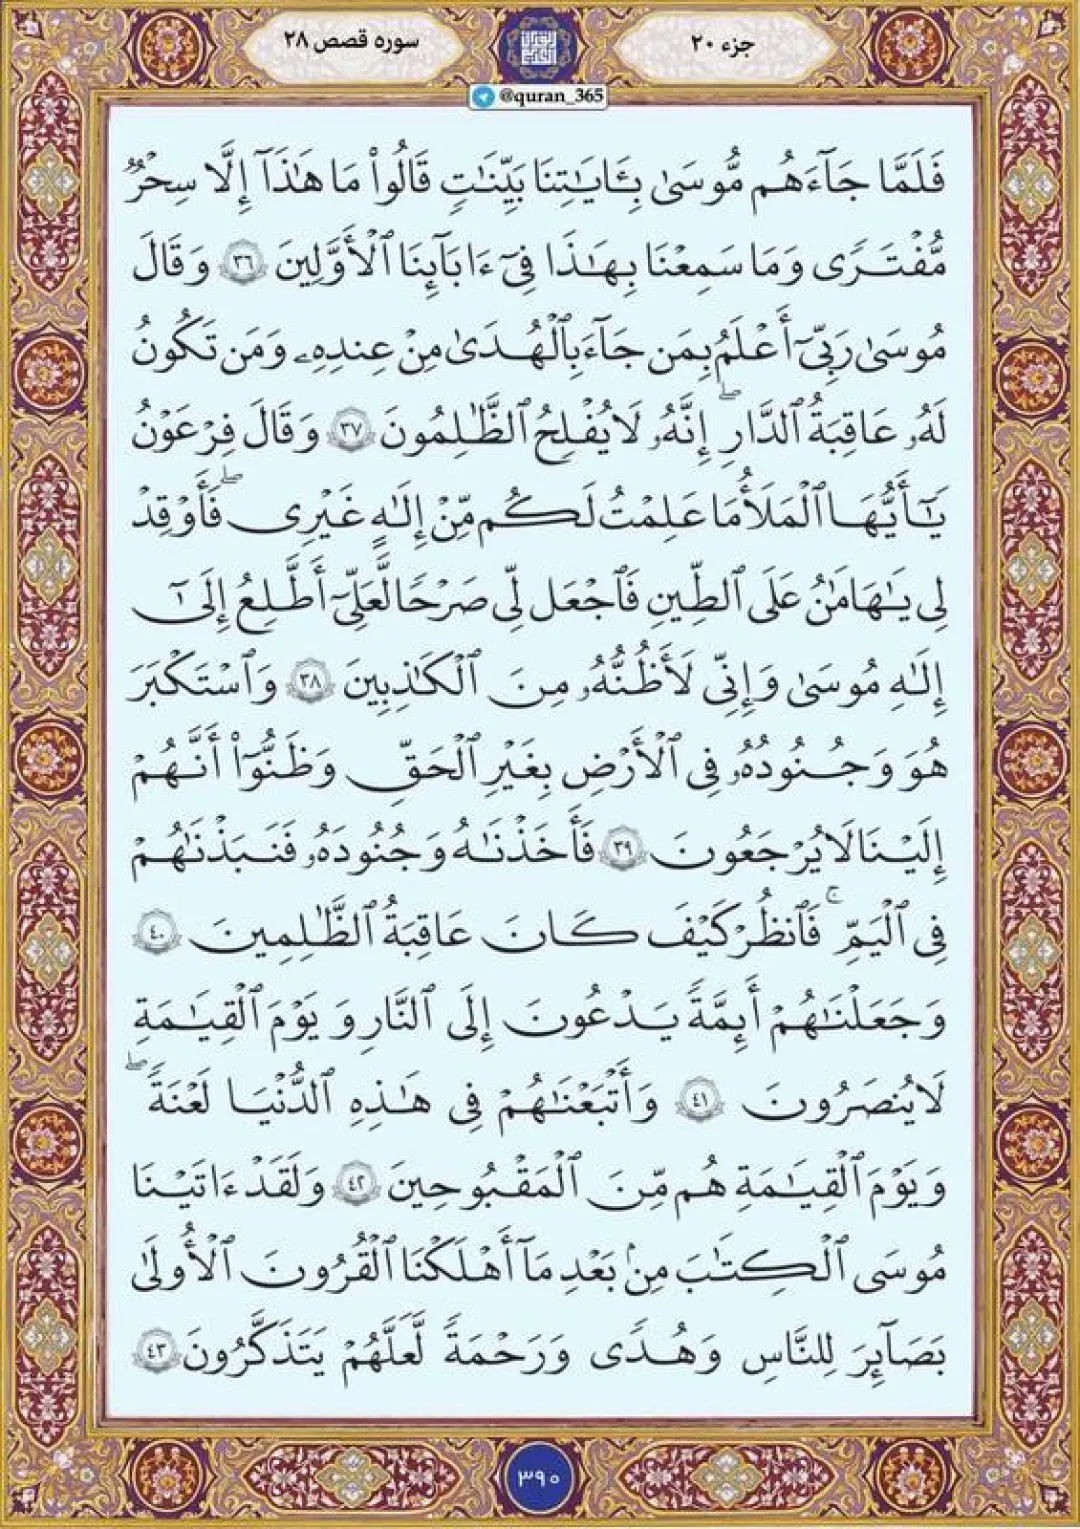 جزء ۲۰
سوره قصص ۲۸
@quran_365
فَلَمَّا جَآءَهُم مُّوسَىٰ بِـَٔايَٰتِنَا بَيِّنَٰتٖ قَالُواْ مَا هَٰذَآ إِلَّا سِحۡرٞ
مُّفۡتَرٗى وَمَا سَمِعۡنَا بِهَٰذَا فِيٓ ءَابَآئِنَا ٱلۡأَوَّلِينَ ٣٦ وَقَالَ
مُوسَىٰ رَبِّيٓ أَعۡلَمُ بِمَن جَآءَ بِٱلۡهُدَىٰ مِنۡ عِندِهِۦ وَمَن تَكُونُ
لَهُۥ عَٰقِبَةُ ٱلدَّارِۖ إِنَّهُۥ لَا يُفۡلِحُ ٱلظَّٰلِمُونَ ٣٧ وَقَالَ فِرۡعَوۡنُ
يَٰٓأَيُّهَا ٱلۡمَلَأُ مَا عَلِمۡتُ لَكُم مِّنۡ إِلَٰهٍ غَيۡرِي فَأَوۡقِدۡۖ
لِي يَٰهَٰمَٰنُ عَلَى ٱلطِّينِ فَٱجۡعَل لِّي صَرۡحٗا لَّعَلِّيٓ أَطَّلِعُ إِلَىٰٓ
إِلَٰهِ مُوسَىٰ وَإِنِّي لَأَظُنُّهُۥ مِنَ ٱلۡكَٰذِبِينَ ٣٨ وَٱسۡتَكۡبَرَ
هُوَ وَجُنُودُهُۥ فِي ٱلۡأَرۡضِ بِغَيۡرِ ٱلۡحَقِّ وَظَنُّوٓاْ أَنَّهُمۡ
إِلَيۡنَا لَا يُرۡجَعُونَ ٣٩ فَأَخَذۡنَٰهُ وَجُنُودَهُۥ فَنَبَذۡنَٰهُمۡ
فِي ٱلۡيَمِّۚ فَٱنظُرۡ كَيۡفَ كَانَ عَٰقِبَةُ ٱلظَّٰلِمِينَ ٤٠
وَجَعَلۡنَٰهُمۡ أَئِمَّةٗ يَدۡعُونَ إِلَى ٱلنَّارِ وَيَوۡمَ ٱلۡقِيَٰمَةِ
لَا يُنصَرُونَ ٤١ وَأَتۡبَعۡنَٰهُمۡ فِي هَٰذِهِ ٱلدُّنۡيَا لَعۡنَةٗۖ
وَيَوۡمَ ٱلۡقِيَٰمَةِ هُم مِّنَ ٱلۡمَقۡبُوحِينَ ٤٢ وَلَقَدۡ ءَاتَيۡنَا
مُوسَى ٱلۡكِتَٰبَ مِنۢ بَعۡدِ مَآ أَهۡلَكۡنَا ٱلۡقُرُونَ ٱلۡأُولَىٰ
بَصَآئِرَ لِلنَّاسِ وَهُدٗى وَرَحۡمَةٗ لَّعَلَّهُمۡ يَتَذَكَّرُونَ ٤٣
۳۹۰